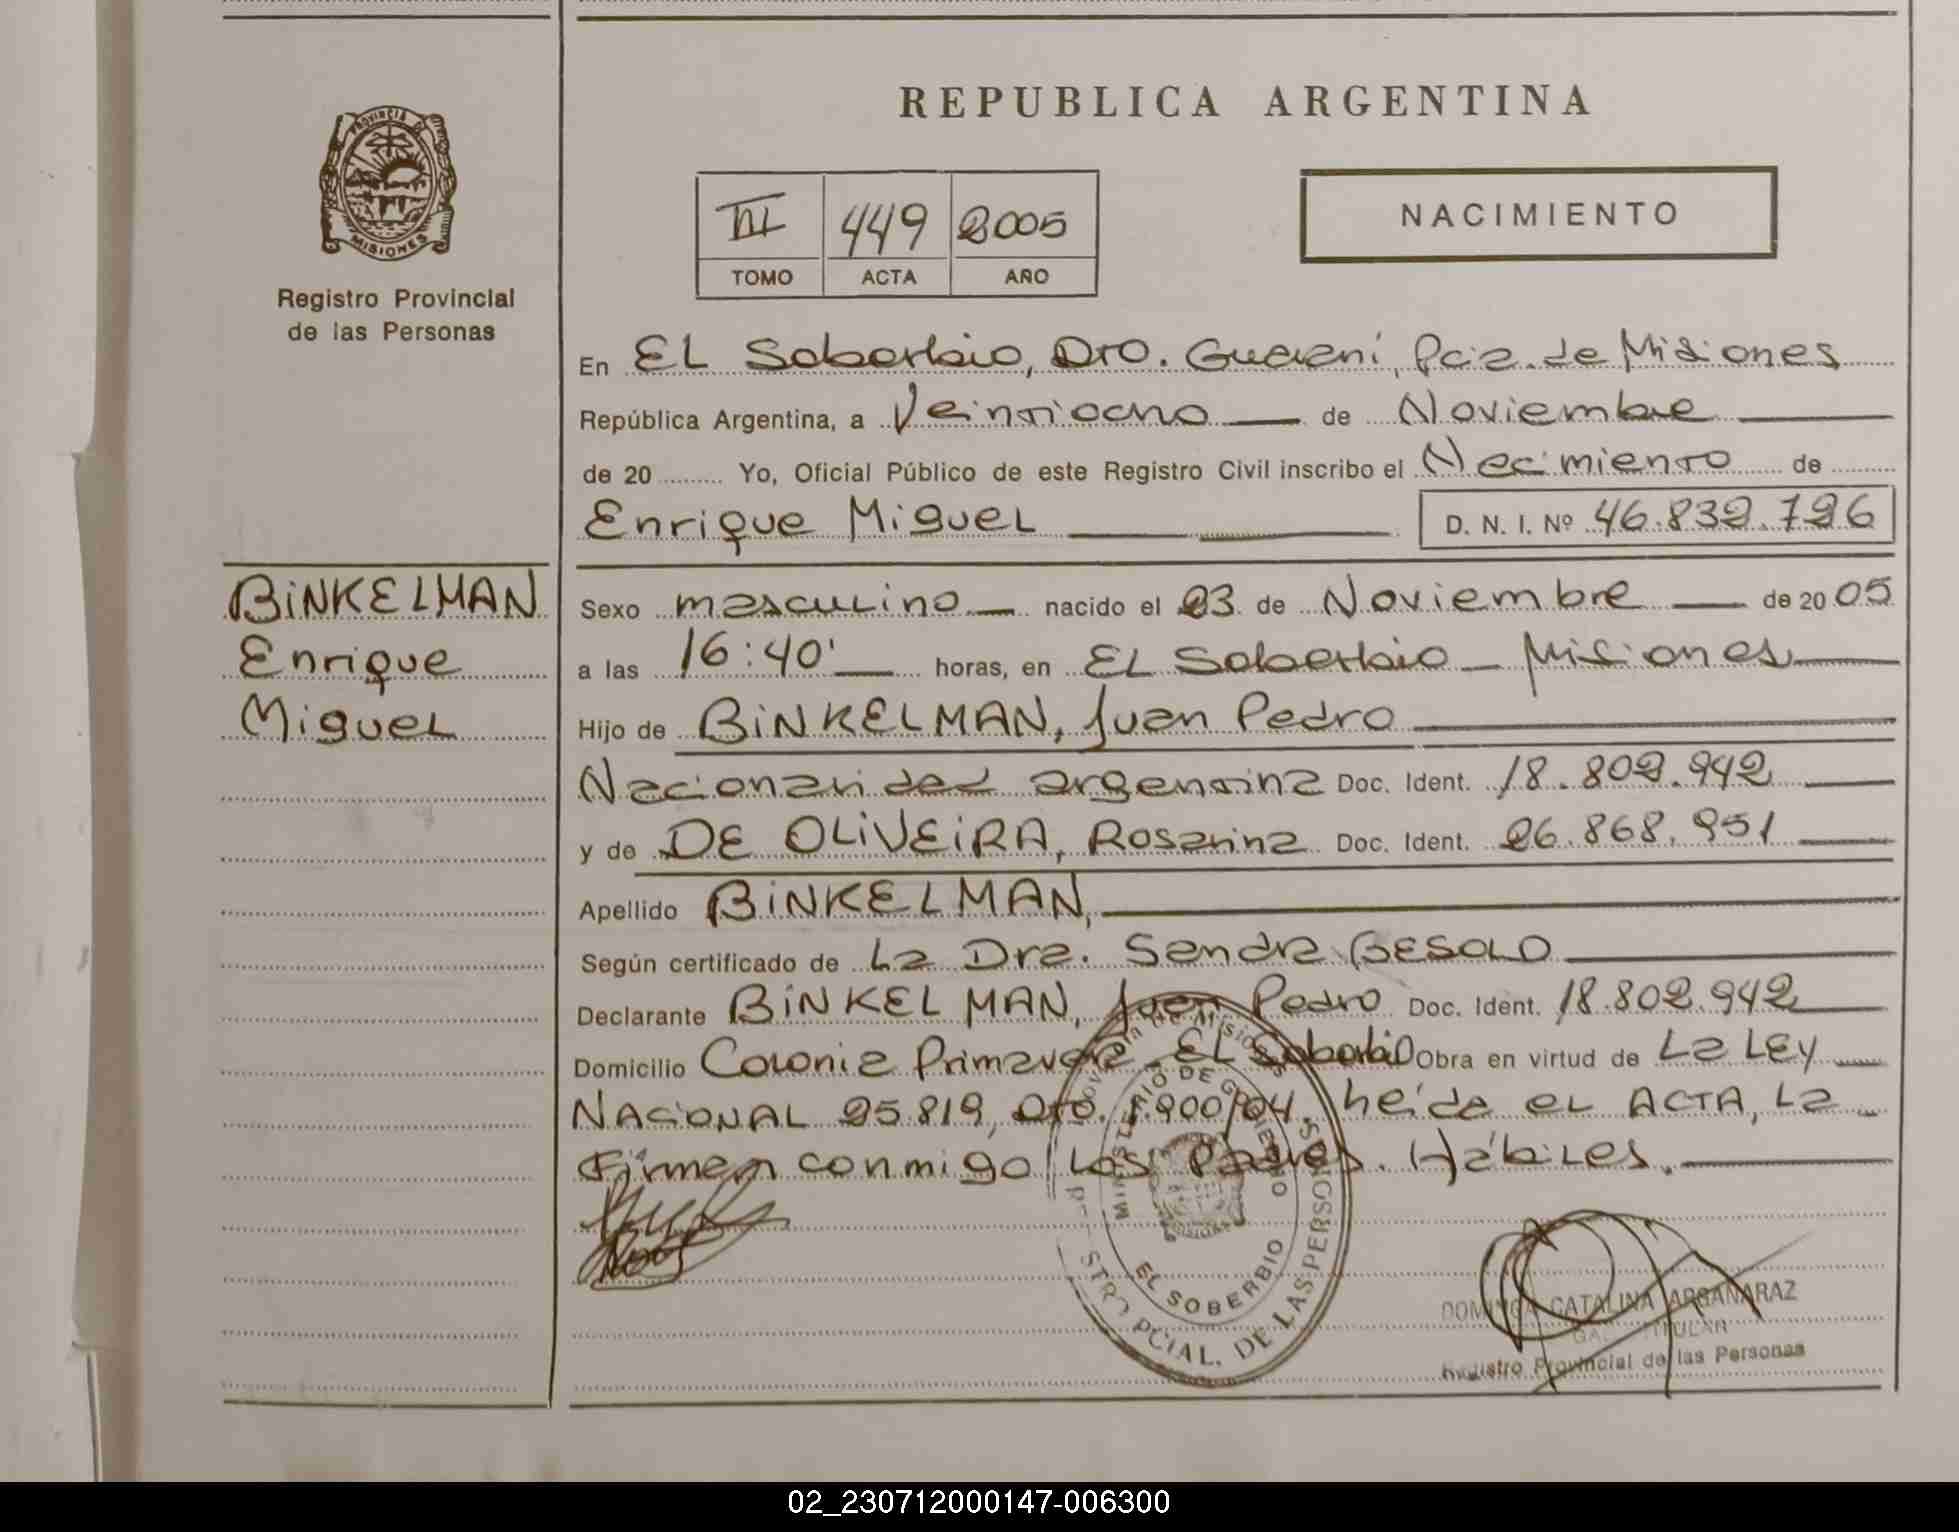 REPUBLICA ARGENTINA
PROVINCIA DE
MISIONES
Registro Provincial
de las Personas
III 449 2005
TOMO ACTA AÑO
NACIMIENTO
En EL Soberbio, Dto. Guaraní, Pcia. de Misiones
República Argentina, a Veintiocho de Noviembre
de 20 Yo, Oficial Público de este Registro Civil inscribo el Nacimiento de
Enrique Miguel D. N. I. Nº 46.832.726
BINKELMAN
Enrique
Miguel
Sexo masculino nacido el 23 de Noviembre de 20 05
a las 16:40' horas, en EL Soberbio - Misiones
Hijo de BINKELMAN, Juan Pedro
Nacionalidad argentina Doc. Ident. 18.802.942
y de DE OLIVEIRA, Rosalina Doc. Ident. 26.868.951
Apellido BINKELMAN,
Según certificado de La Dra. Sandra BESOLD
Declarante BINKELMAN, Juan Pedro Doc. Ident. 18.802.942
Domicilio Colonia Primavera EL Soberbio Obra en virtud de La LEY
NACIONAL 25.819, Dto. 1.900/04. heída el ACTA, La
Firman conmigo Los Padres. Hábiles.
MINISTERIO DE GOBIERNO
EL SOBERBIO
PCIAL. DE LAS PERSONAS
DOMINGA CATALINA ARGAÑARAZ
TITULAR
Registro Provincial de las Personas
02_230712000147-006300